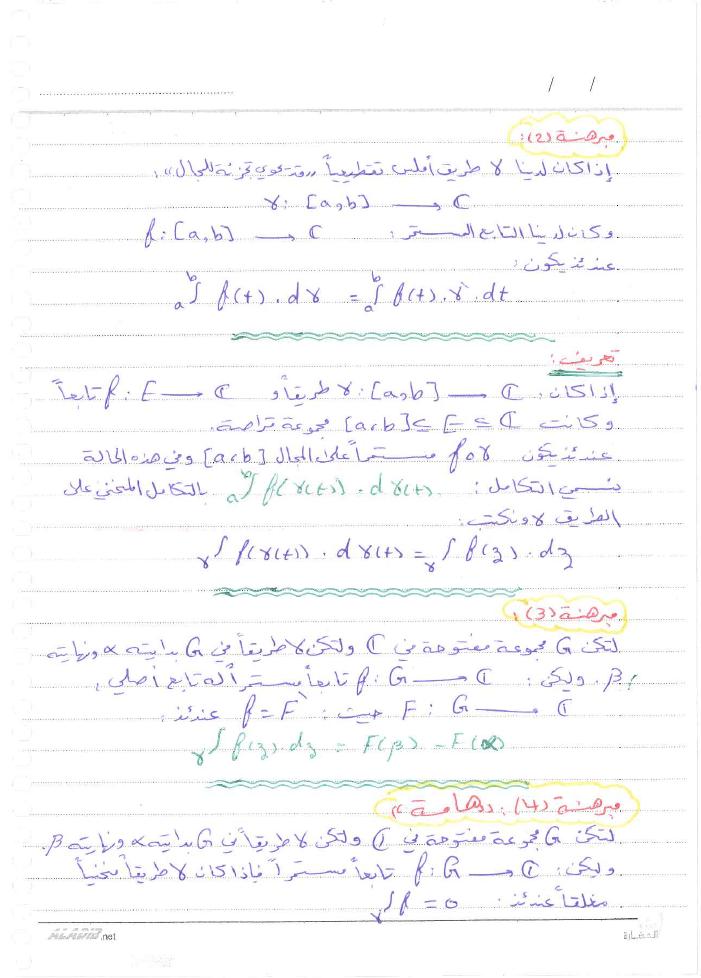 / /
مبرهنة (2):
إذا كان لدينا γ طريق أملس تقطيعياً "قد يحوي تجزئة للمجال":
γ: [a,b] → ℂ
وكان لدينا التابع المستمر: f: [a,b] → ℂ
عندئذ يكون:
ₐ∫ᵇ f(t) . dγ = ₐ∫ᵇ f(t) . γ` . dt
تعريف:
إذا كان: γ: [a,b] → ℂ طريقاً و f: E → ℂ تابعاً
وكانت [a,b] ⊆ E ⊆ ℂ مجموعة متراصة.
عندئذ يكون f∘γ مستمراً على المجال [a,b] وفي هذه الحالة
نسمي التكامل: ₐ∫ᵇ f(γ(t)) . dγ(t) بالتكامل المنحني على
الطريق γ ونكتب:
ᵧ∫ f(γ(t)) . dγ(t) = ᵧ∫ f(z) . dz
مبرهنة (3):
لتكن G مجموعة مفتوحة في ℂ ولتكن γ طريقاً في G بدايته α ونهايته
β. وليكن: f: G → ℂ تابعاً مستمراً له تابع أصلي:
F: G → ℂ حيث: f = F` عندئذ:
ᵧ∫ f(z) . dz = F(β) - F(α)
مبرهنة (4): "هامة"
لتكن G مجموعة مفتوحة في ℂ ولتكن γ طريقاً في G بدايته α ونهايته β.
وليكن: f: G → ℂ تابعاً مستمراً فإذا كان γ طريقاً منحنياً
مغلقاً عندئذ: ᵧ∫ f = 0
ALADIB.net